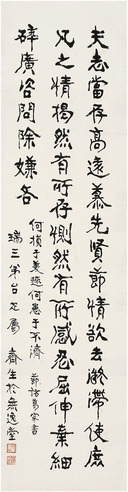 夫志當存高遠慕先賢節情欲去凝滯使庶
几之情揭然有所存惻然有所感忍屈伸棄細
碎廣咨問除嫌吝
何損于美趣何患于不濟 節諸葛家書
瑞三 台兄屬 齋生於無逸堂